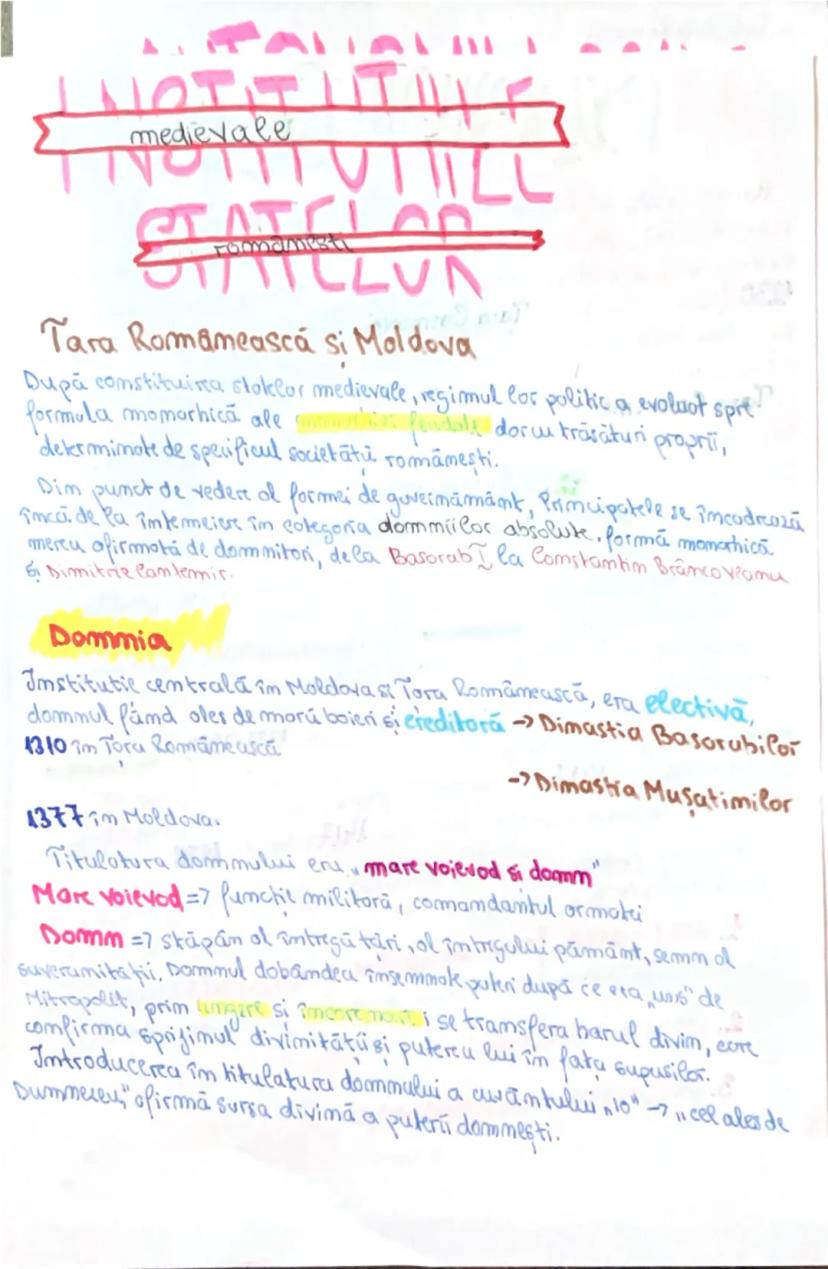 INSTITUȚIILE
medievale
STATELOR
românești
Țara Românească și Moldova
După constituirea statelor medievale, regimul lor politic a evoluat spre
formula monarhică ale feudale dar cu trăsături proprii,
determinate de specificul societății românești.
Din punct de vedere al formei de guvernământ, Principatele se încadrează
încă de la întemeiere în categoria domniilor absolute, formă monarhică
mereu afirmată de domnitori, de la Basarab I la Constantin Brâncoveanu
și Dimitrie Cantemir.
Domnia
Instituție centrală în Moldova și Țara Românească, era electivă,
domnul fiind ales de marii boieri și ereditară -> Dinastia Basarabilor
1310 în Țara Românească
-> Dinastia Mușatinilor
1377 în Moldova.
Titulatura domnului era „mare voievod și domn"
Mare voievod => funcție militară, comandantul armatei
Domn => stăpân al întregii țări, al întregului pământ, semn al
suveranității. Domnul dobândea însemnate puteri după ce era „uns" de
Mitropolit, prin ungere și încoronare i se transfera harul divin, care
confirma sprijinul divinității și puterea lui în fața supușilor.
Introducerea în titulatura domnului a cuvântului „IO" -> „cel ales de
Dumnezeu," afirmă sursa divină a puterii domnești.